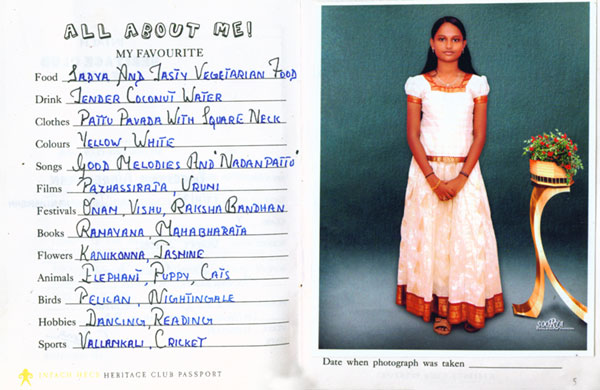 ALL ABOUT ME!
MY FAVOURITE
Food SADYA AND TASTY VEGETARIAN FOOD
Drink TENDER COCONUT WATER
Clothes PATTU PAVADA WITH SQUARE NECK
Colours YELLOW, WHITE
Songs GOOD MELODIES AND 'NADANPATTU'
Films PAZHASSIRAJA, URUMI
Festivals ONAM, VISHU, RAKSHA BANDHAN
Books RAMAYANA, MAHABHARATA
Flowers KANIKONNA, JASMINE
Animals ELEPHANT, PUPPY, CATS
Birds PELICAN, NIGHTINGALE
Hobbies DANCING, READING
Sports VALLAMKALI, CRICKET
INTACH HECS HERITAGE CLUB PASSPORT
Date when photograph was taken
5